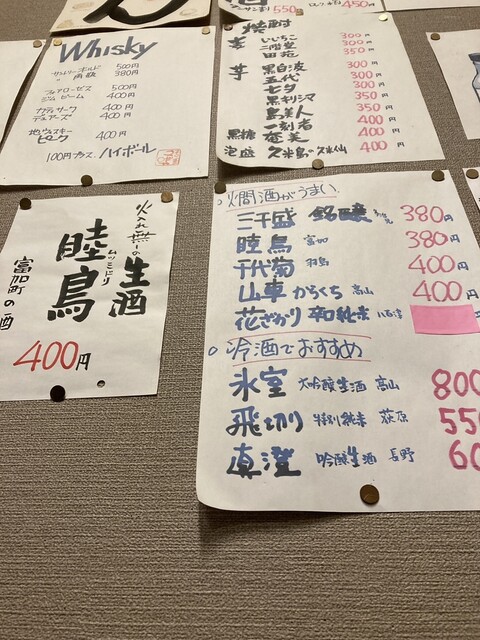 550
450
Whisky
サントリーオールド 500円
〃 角瓶 380円
フォアローゼス 500円
ジムビーム 400円
カティサーク 400円
デュアーズ 400円
地ウイスキー
400円
100円プラス ハイボール
焼酎
麦 いいちこ 300円
二階堂 300円
田苑 350円
芋 黒白波 300円
五代 300円
七夕 300円
黒利沢 350円
島美人 350円
一刻者 400円
黒糖 奄美 400円
泡盛 久米島の久米仙 400円
火入れ無しの
生酒
ムツミドリ
睦鳥
富加町の酒
400円
○燗酒がうまい
三千盛 銘醸 380円
睦鳥 富加 380円
千代菊 羽島 400円
山車 からくち 高山 400円
花ざかり 純米 八百津
○冷酒でおすすめ
氷室 大吟醸生酒 高山 800
飛切り 特別純米 萩原 550
真澄 吟醸生酒 長野 60